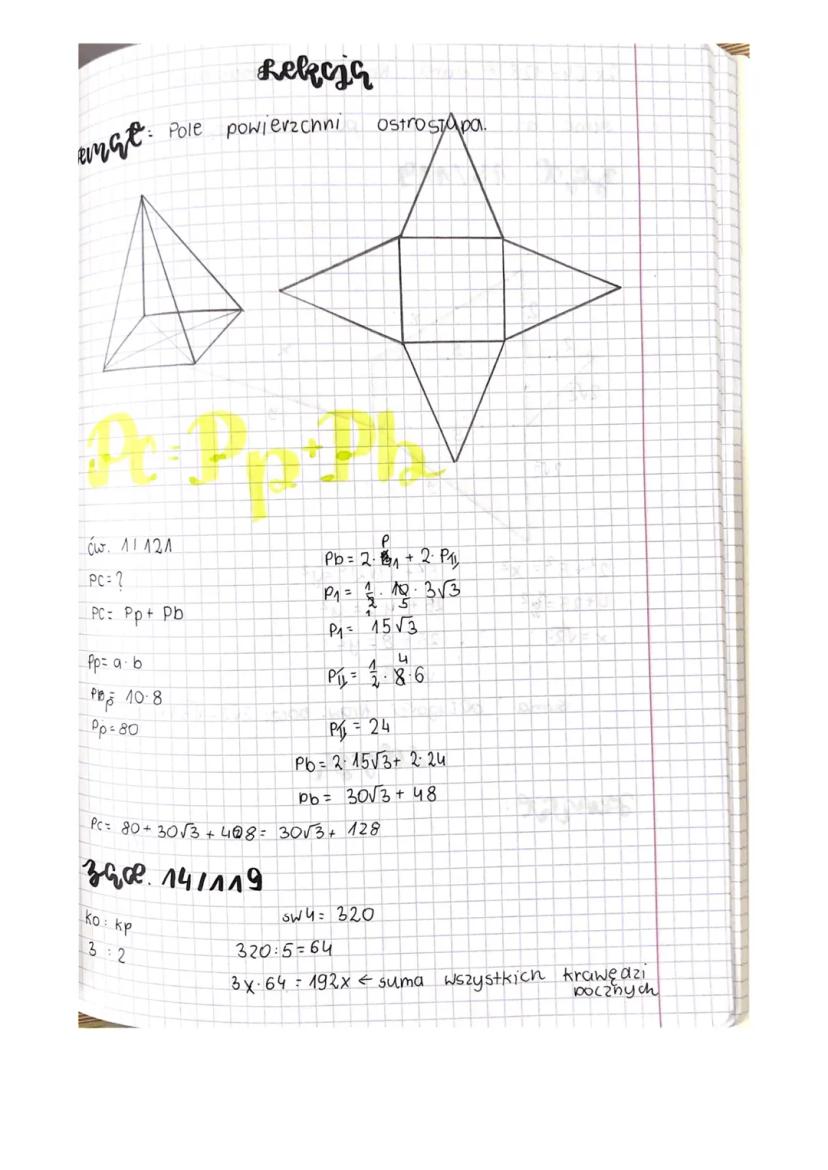 Lekcja
Temat: Pole powierzchni ostrosłupa.
Pc = Pp + Pb
ćw. 1 / 121
Pc = ?
Pc = Pp + Pb
Pp = a · b
Pp = 10 · 8
Pp = 80
Pb = 2 · P1 + 2 · PII
P1 = 1/2 · 10 · 3√3
5
P1 = 15√3
4
PII = 1/2 · 8 · 6
PII = 24
Pb = 2 · 15√3 + 2 · 24
Pb = 30√3 + 48
Pc = 80 + 30√3 + 48 = 30√3 + 128
zad. 14 / 119
ko : kp
3 : 2
sw4 = 320
320 : 5 = 64
3x · 64 = 192x ← suma wszystkich krawędzi
bocznych